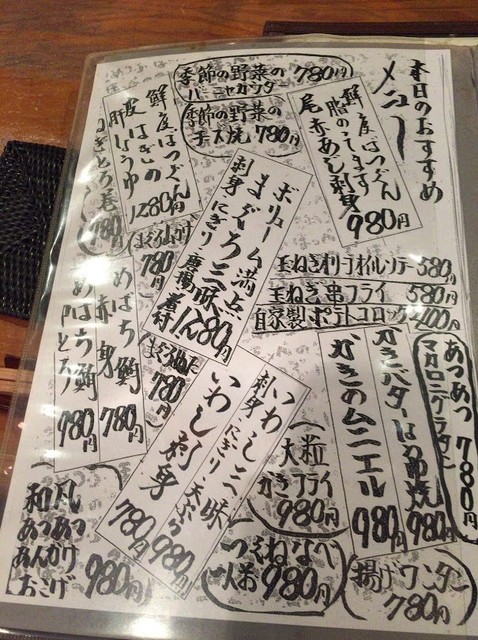 本日のおすすめ
メニュー
鮮度ばつぐん
脂のってます
尾赤あじ刺身
980円
季節の野菜の
バーニャカウダー 780円
季節の野菜の
チーズ焼 780円
鮮度ばつぐん
皮はぎの
肝しょうゆ
1280円
ねぎとろ巻
780円
ボリューム満点
まぐろ三昧
刺身 にぎり 唐揚 煮付
1580円
まぐろ山かけ
780円
まぐろぬた
780円
めばち鮪
赤身
780円
めばち鮪
中とろ
980円
玉ねぎオリーブオイルソテー 580円
玉ねぎ串フライ 580円
自家製ポテトコロッケ 400円
あつあつ
マカロニグラタン
780円
かきバターしょうゆ焼
980円
かきのムニエル
980円
大粒
かきフライ
980円
いわし三昧
刺身 にぎり 天ぷら
980円
いわし刺身
780円
つくねなべ
一人前 980円
揚げワンタン
780円
和風
あつあつ
あんかけ
おこげ 980円